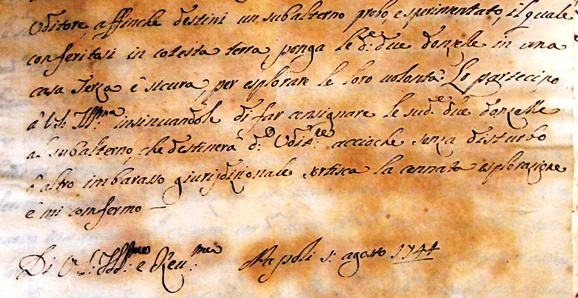 Uditore affinche destini un subalterno probo e sperimentato, il quale
conferitosi in cotesta terra ponga le d.e due donzelle in una
casa terza e sicura, per esplorare le loro volontà. Lo partecipo
à V.S. Ill.ma insinuandole di far consignare le sud.e due donzelle
al subalterno, che destinerà d.o Udit.re accioche senza disturbo
ò altro imbarazzo giurisdizionale sortisca la cennata esplorazione
e mi confermo —
Di V.S. Ill.ma e Rev.ma Napoli p.o agosto 1744